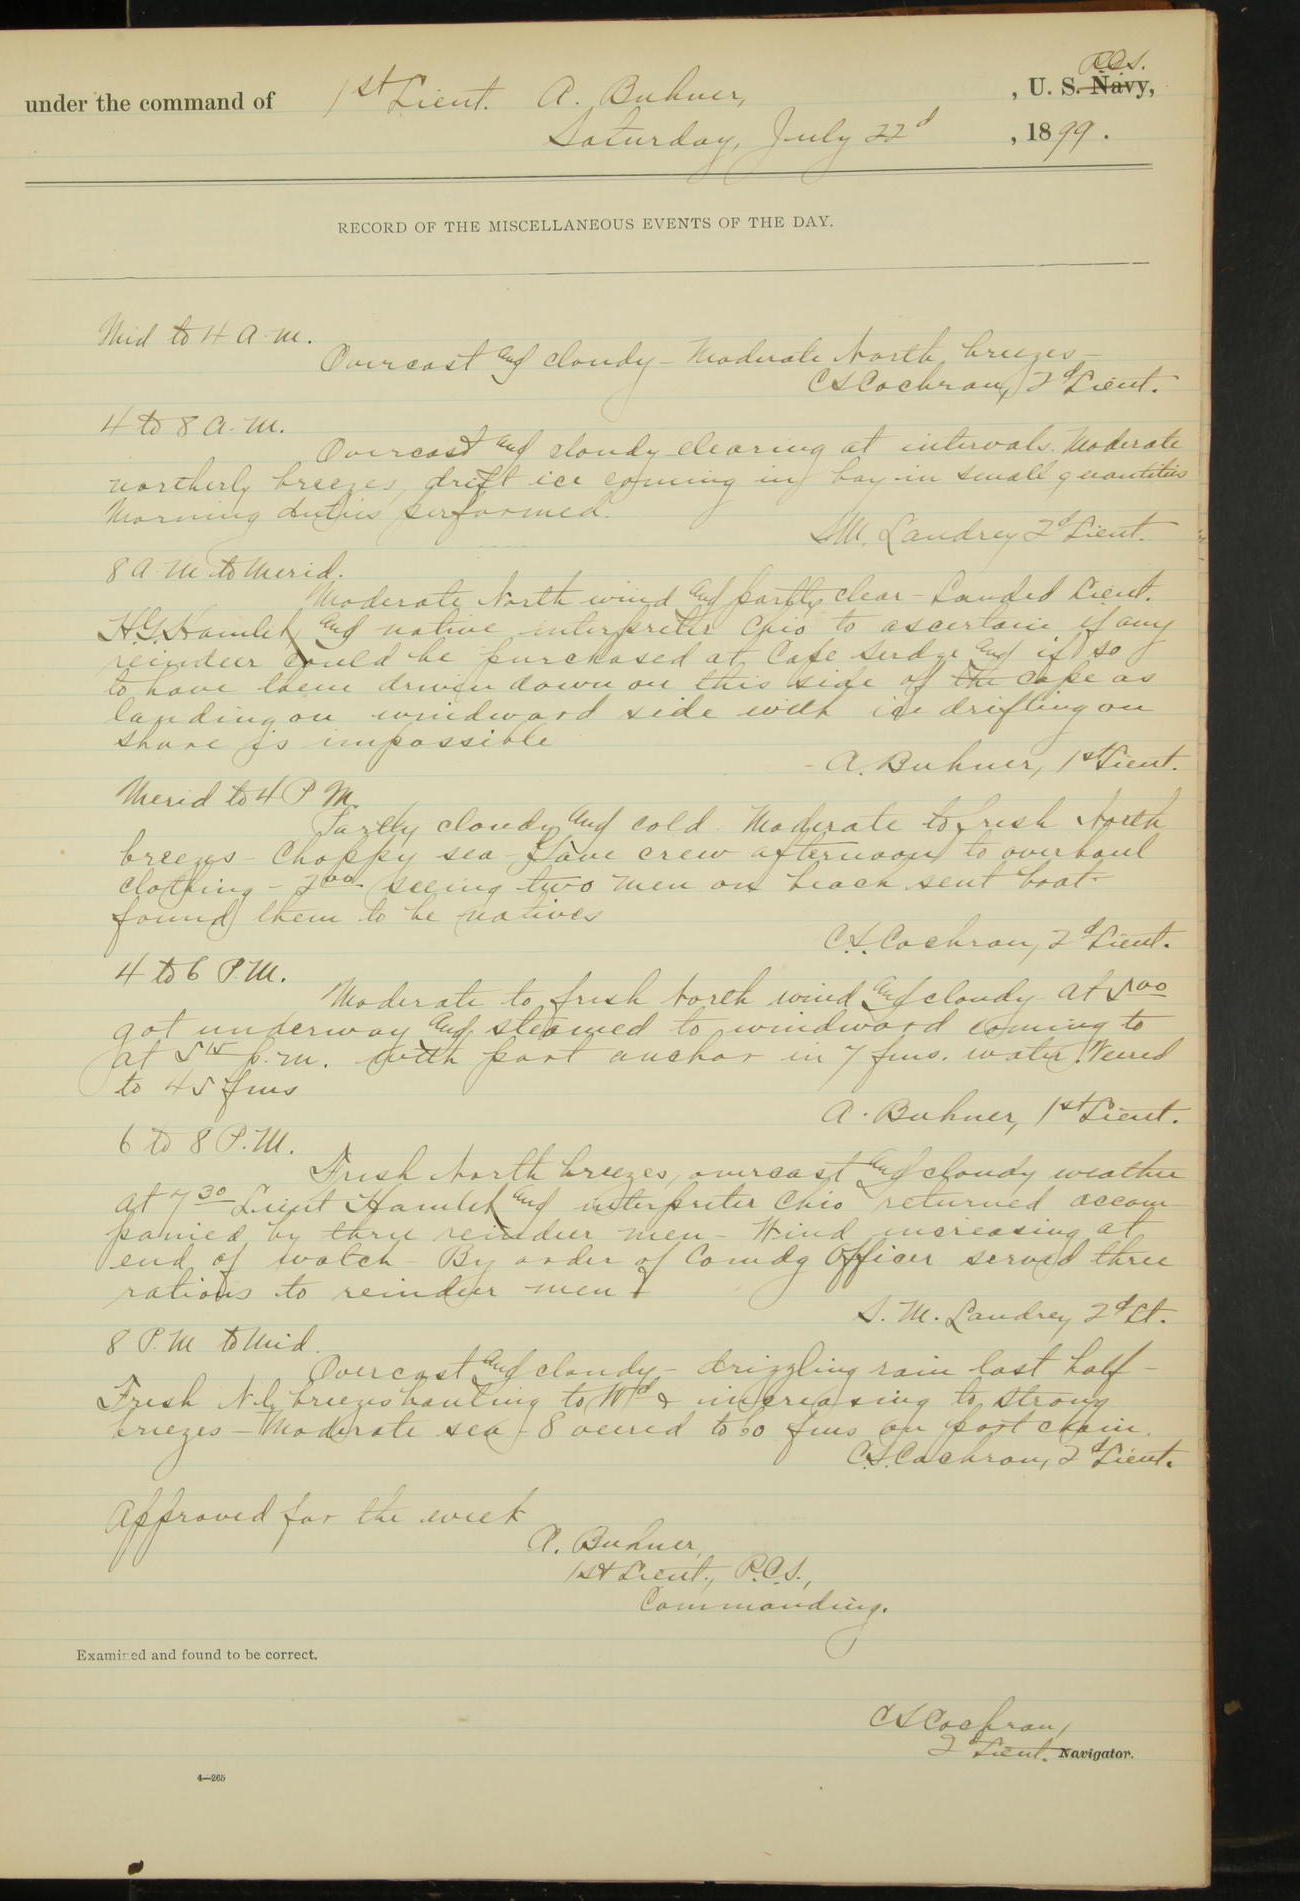 under the command of 1st Lieut. A. Buhner, , U. S. Navy, R.C.S.
Saturday, July 22d , 1899.
RECORD OF THE MISCELLANEOUS EVENTS OF THE DAY.
Mid to 4 A.M.
Overcast and cloudy – Moderate North breezes –
C.S. Cochran, 2d Lieut.
4 to 8 A.M.
Overcast and cloudy clearing at intervals. Moderate
northerly breezes, drift ice coming in bay in small quantities
Morning duties performed.
S.M. Landrey 2d Lieut.
8 A M to Merid.
Moderate North wind and partly clear – Landed Lieut.
H.G. Hamlet and native interpreter Chio to ascertain if any
reindeer could be purchased at Cape Serdze and if so
to have them driven down on this side of the cape as
landing on windward side with ice drifting on
shore is impossible
A. Buhner, 1st Lieut.
Merid to 4 P M.
Partly cloudy and cold. Moderate to fresh North
breezes – Choppy sea – Gave crew afternoon to overhaul
clothing – 2 00 seeing two men on beach sent boat –
found them to be natives
C.S. Cochran, 2d Lieut.
4 to 6 P.M.
Moderate to fresh North wind and cloudy At 5 00
got underway and steamed to windward coming to
at 5 15 p.m. with port anchor in 7 fms. water. Veered
to 45 fms
A. Buhner, 1st Lieut.
6 to 8 P.M.
Fresh North breezes, overcast and cloudy weather
At 7 30 Lieut Hamlet and interpreter Chio returned accom-
panied by three reindeer men – Wind increasing at
end of watch By order of Comdg Officer served three
rations to reindeer men
S. M. Landrey 2d Lt.
8 P.M to Mid.
Overcast and cloudy – drizzling rain last half –
Fresh N.ly breezes hauling to Wd & increasing to strong
breezes – Moderate sea – 8 veered to 60 fms on port chain.
C.S. Cochran, 2d Lieut.
Approved for the week
A. Buhner,
1st Lieut., R.C.S.,
Commanding.
Examined and found to be correct.
C S Cochran,
2d Lieut. Navigator.
4—265